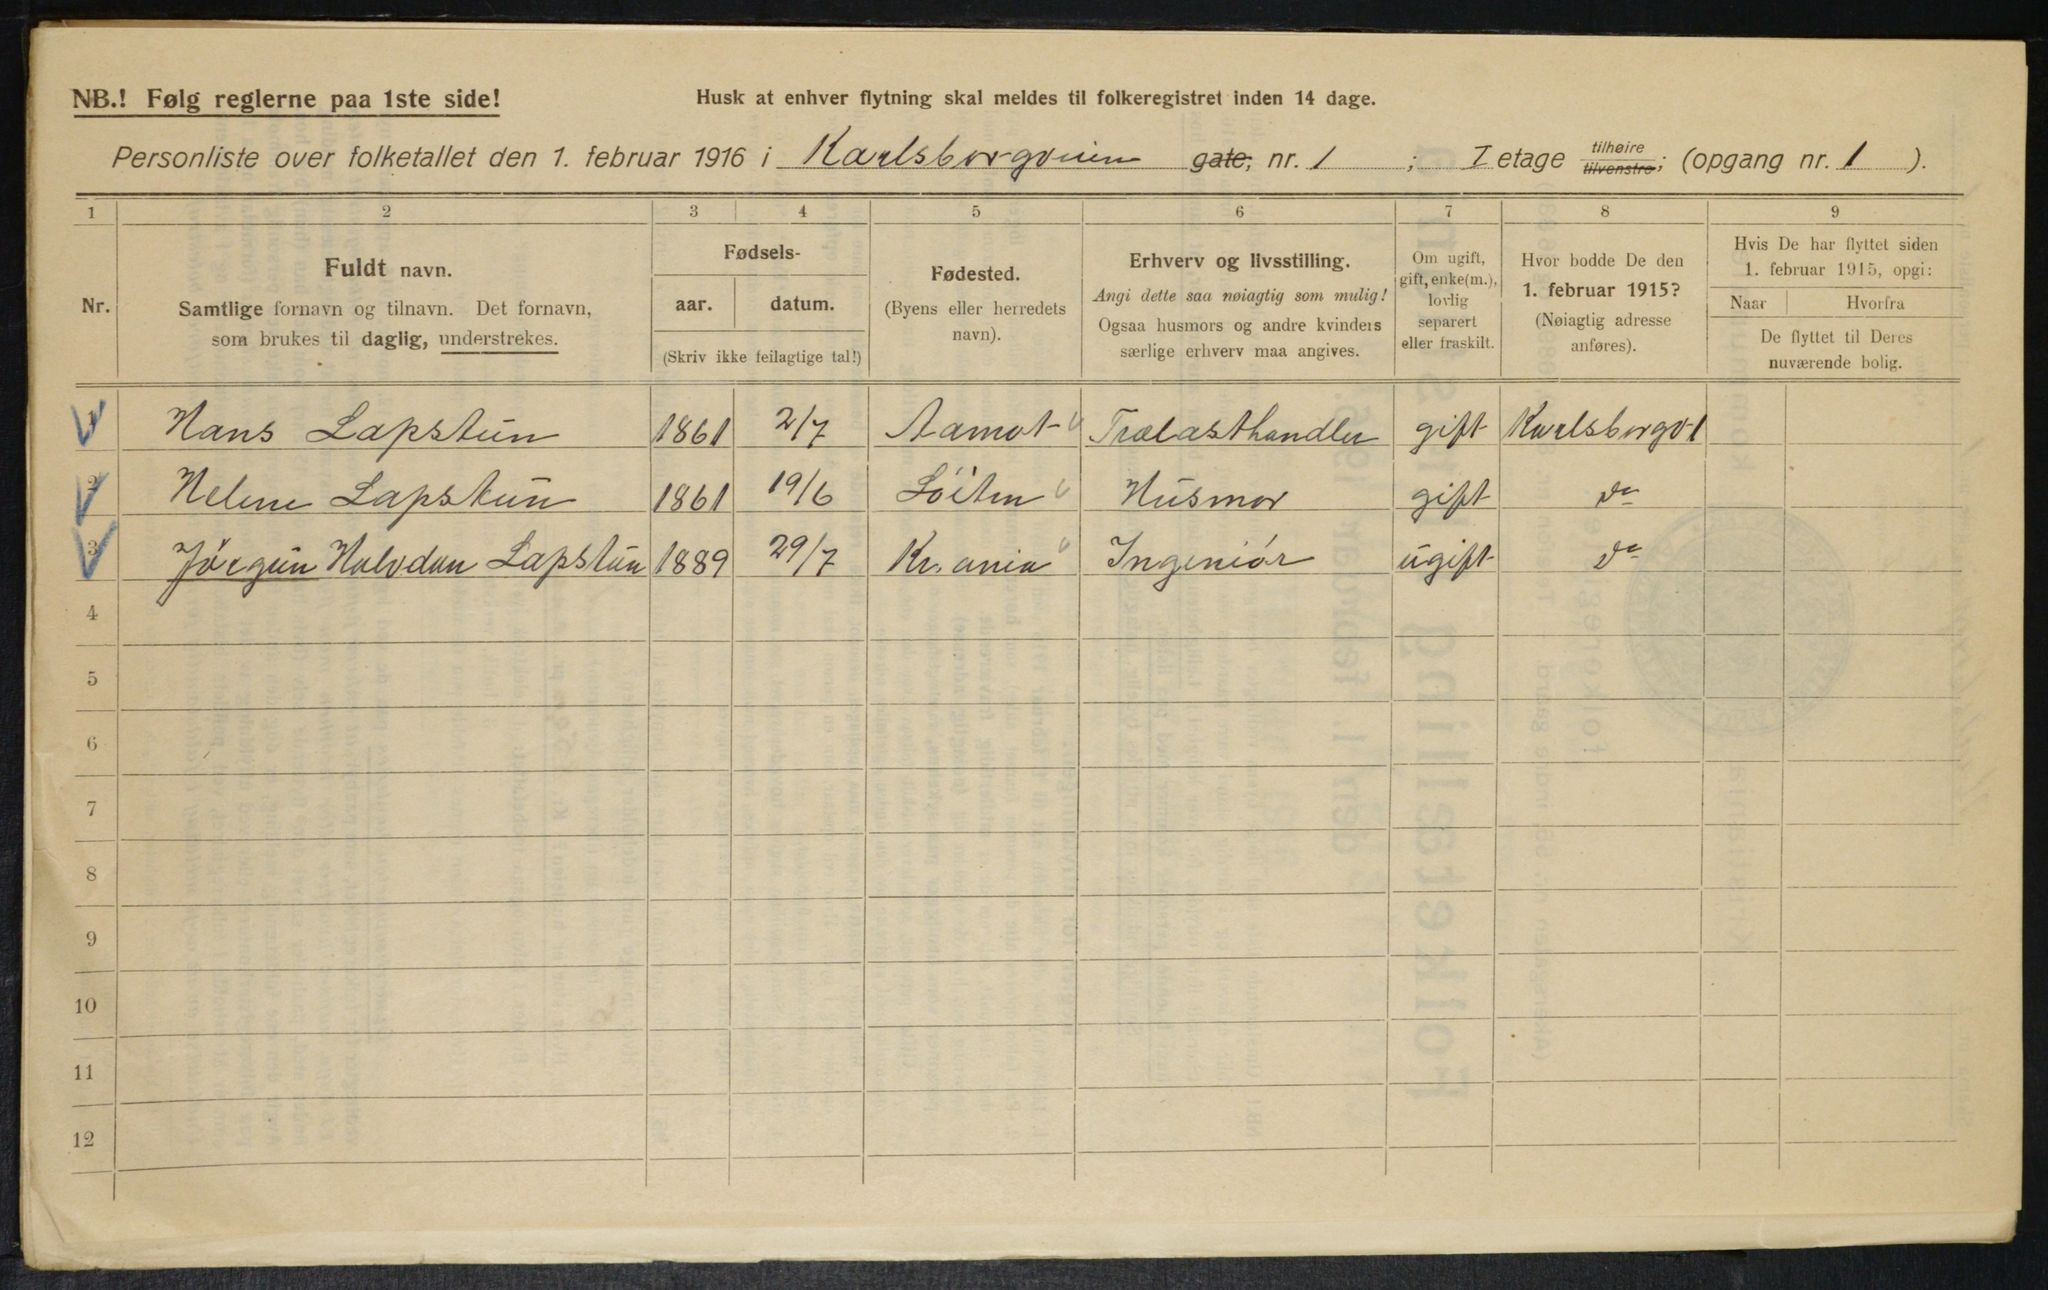 NB.! Følg reglerne paa 1ste side!
Husk at enhver flytning skal meldes til folkeregistret inden 14 dage.
Personliste over folketallet den 1. februar 1916 i Karlsborgveien gate, nr. 1 ; I etage tilhøire tilvenstre; (opgang nr. 1 ).
1 2 3 4 5 6 7 8 9
Nr.
Fuldt navn.
Samtlige fornavn og tilnavn. Det fornavn,
som brukes til daglig, understrekes.
Fødsels-
aar. datum.
(Skriv ikke feilagtige tal!)
Fødested.
(Byens eller herredets
navn).
Erhverv og livsstilling.
Angi dette saa nøiagtig som mulig!
Ogsaa husmors og andre kvinders
særlige erhverv maa angives.
Om ugift,
gift, enke(m.),
lovlig
separert
eller fraskilt.
Hvor bodde De den
1. februar 1915?
(Nøiagtig adresse
anføres).
Hvis De har flyttet siden
1. februar 1915, opgi:
Naar Hvorfra
De flyttet til Deres
nuværende bolig.
1 Hans Lapstun 1861 2/7 Aamot Trælasthandler gift Karlsborgv 1
2 Helene Lapstun 1861 19/6 Löiten Husmor gift do
3 Jörgen Halvdan Lapstun 1889 29/7 Kr.ania Ingeniör ugift do
4
5
6
7
8
9
10
11
12